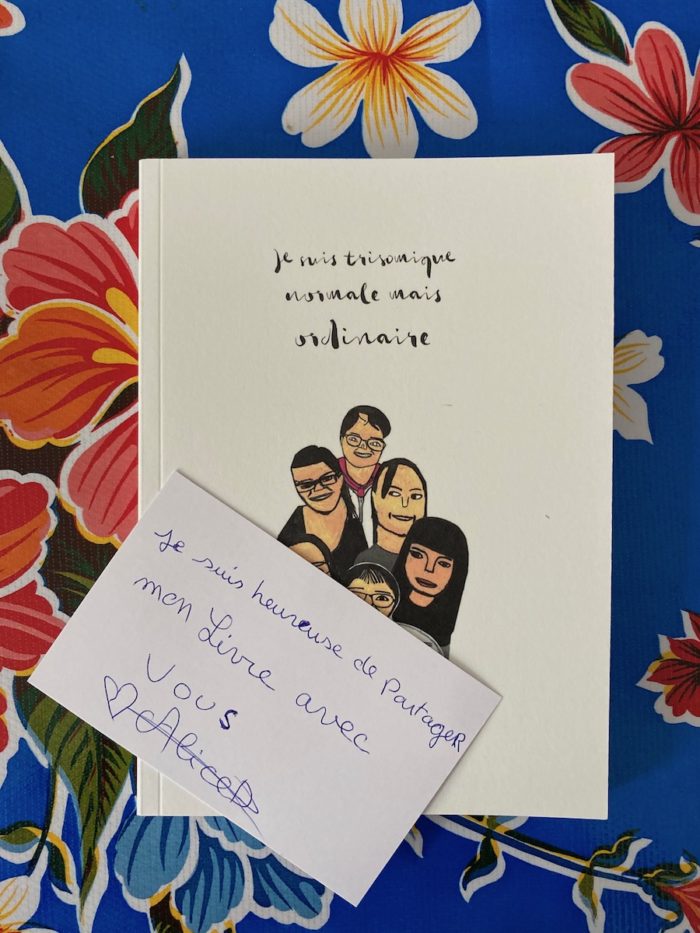 Je suis trisomique
normale mais
ordinaire
Je suis heureuse de PartageR
mon Livre avec
vous
AliceD